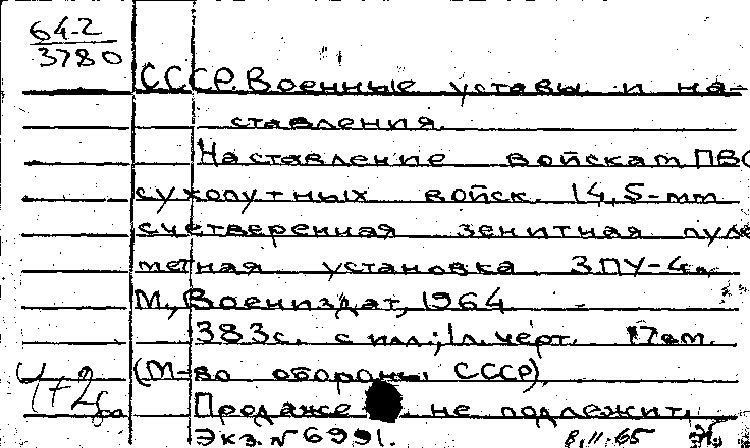 64-2
3780
СССР. Военные уставы и на-
ставления.
Наставление войскам ПВО
сухопутных войск. 14,5-мм
счетверенная зенитная пуле
метная установка ЗПУ-4.
М., Воениздат, 1964
383с. с илл.; 1л. черт. 17см.
(М-во обороны СССР).
Продаже не подлежит.
Экз. № 6991.
8.II.65